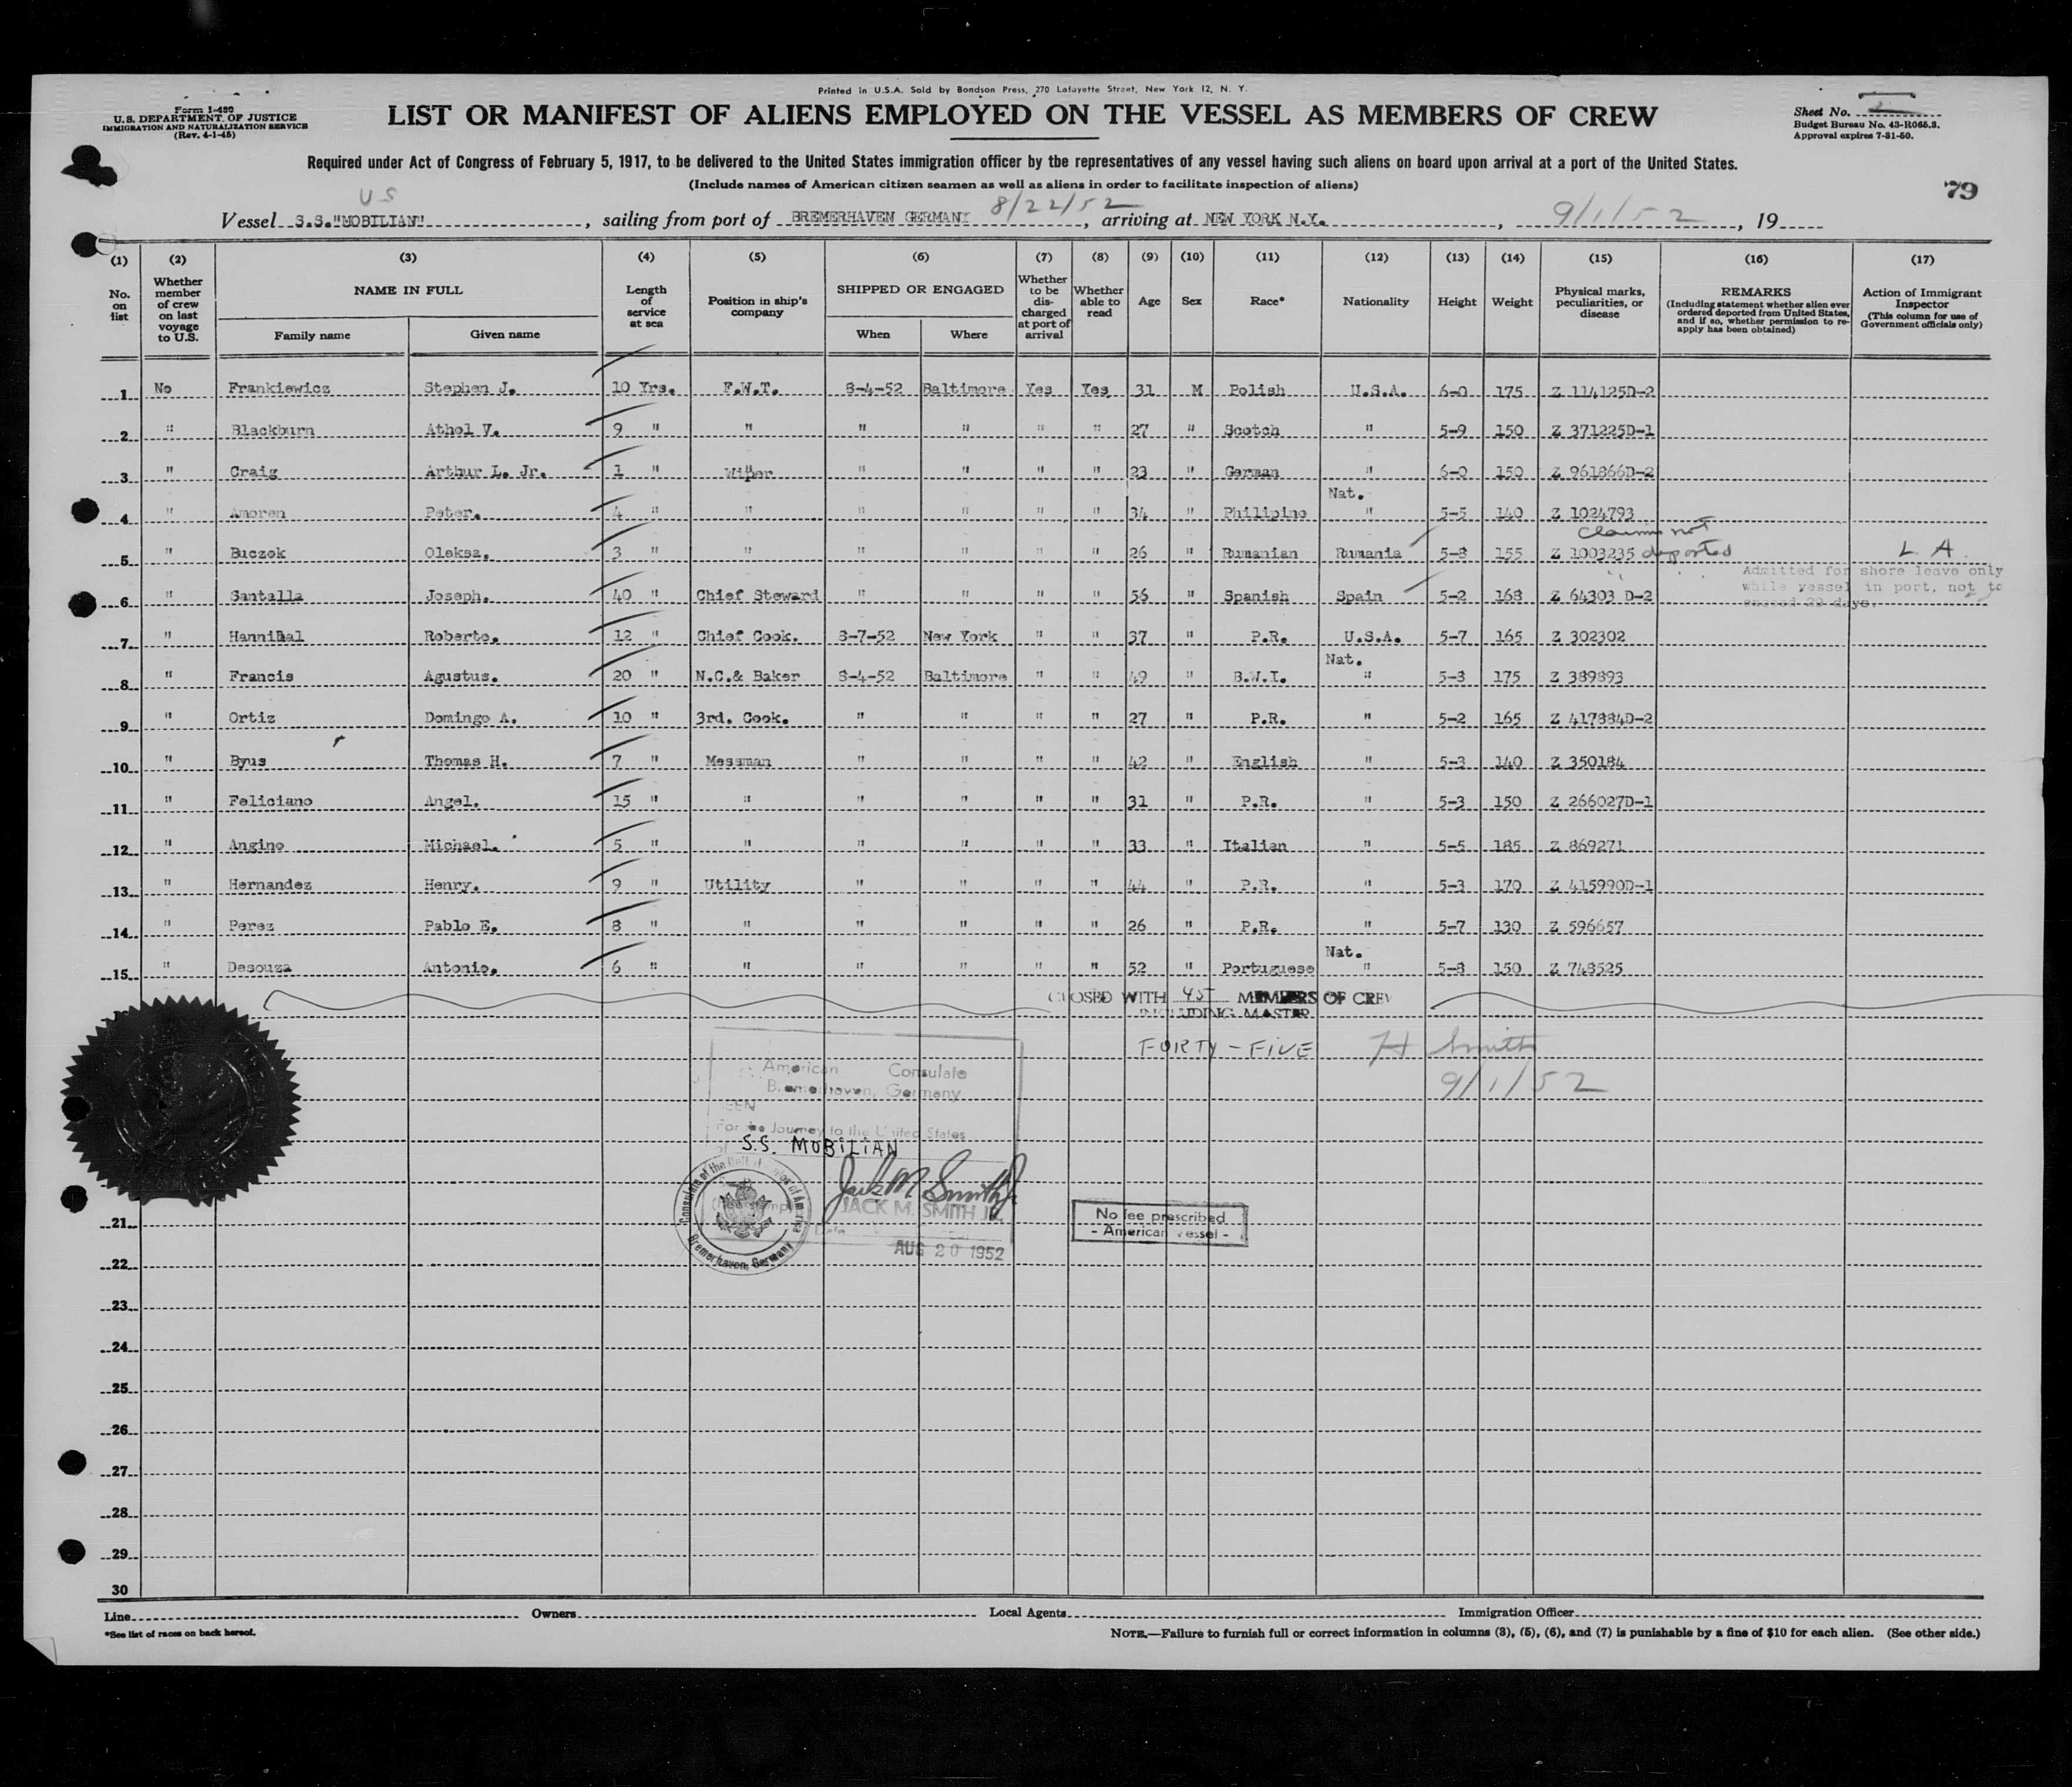 Printed in U.S.A. Sold by Bondson Press, 270 Lafayette Street, New York 12, N. Y.
Form I-480
U.S. DEPARTMENT OF JUSTICE
IMMIGRATION AND NATURALIZATION SERVICE
(Rev. 4-1-45)
LIST OR MANIFEST OF ALIENS EMPLOYED ON THE VESSEL AS MEMBERS OF CREW
Sheet No.
Budget Bureau No. 43-R065.3.
Approval expires 7-31-50.
Required under Act of Congress of February 5, 1917, to be delivered to the United States immigration officer by the representatives of any vessel having such aliens on board upon arrival at a port of the United States.
(Include names of American citizen seamen as well as aliens in order to facilitate inspection of aliens)
79
US
Vessel S.S."MOBILIAN", sailing from port of BREMERHAVEN GERMANY 8/22/52, arriving at NEW YORK N.Y., 9/1/52, 19
(1) (2) (3) (4) (5) (6) (7) (8) (9) (10) (11) (12) (13) (14) (15) (16) (17)
No. on list
Whether member of crew on last voyage to U.S.
NAME IN FULL
Family name Given name
Length of service at sea
Position in ship's company
SHIPPED OR ENGAGED
When Where
Whether to be discharged at port of arrival
Whether able to read
Age
Sex
Race*
Nationality
Height
Weight
Physical marks, peculiarities, or disease
REMARKS
(Including statement whether alien ever ordered deported from United States, and if so, whether permission to reapply has been obtained)
Action of Immigrant Inspector
(This column for use of Government officials only)
1 No Frankiewicz Stephen J. 10 Yrs. F.W.T. 8-4-52 Baltimore Yes Yes 31 M Polish U.S.A. 6-0 175 Z 114125D-2
2 " Blackburn Athol V. 9 " " " " " " 27 " Scotch " 5-9 150 Z 371225D-1
3 " Craig Arthur L. Jr. 1 " Wiper " " " " 23 " German " 6-0 150 Z 961866D-2
Nat.
4 " Amoren Peter. 4 " " " " " " 34 " Philipino " 5-5 140 Z 1024793
claims not
5 " Biczok Oleksa. 3 " " " " " " 26 " Rumanian Rumania 5-8 155 Z 1003235 deported L. A.
Admitted for shore leave only
while vessel in port, not to
exceed 29 days.
6 " Santalla Joseph. 40 " Chief Steward " " " " 56 " Spanish Spain 5-2 168 Z 64303 D-2
7 " Hannibal Roberto. 12 " Chief Cook. 8-7-52 New York " " 37 " P.R. U.S.A. 5-7 165 Z 302302
Nat.
8 " Francis Agustus. 20 " N.C.& Baker 8-4-52 Baltimore " " 49 " B.W.I. " 5-8 175 Z 389893
9 " Ortiz Domingo A. 10 " 3rd. Cook. " " " " 27 " P.R. " 5-2 165 Z 417884D-2
10 " Byus Thomas H. 7 " Messman " " " " 42 " English " 5-3 140 Z 350184
11 " Feliciano Angel. 15 " " " " " " 31 " P.R. " 5-3 150 Z 266027D-1
12 " Angino Michael. 5 " " " " " " 33 " Italian " 5-5 185 Z 869271
13 " Hernandez Henry. 9 " Utility " " " " 44 " P.R. " 5-3 170 Z 415990D-1
14 " Perez Pablo E. 8 " " " " " " 26 " P.R. " 5-7 130 Z 596657
Nat.
15 " Desouza Antonio. 6 " " " " " " 52 " Portuguese " 5-8 150 Z 748525
CLOSED WITH 45 MEMBERS OF CREW
INCLUDING MASTER
FORTY-FIVE H Smith
9/1/52
American Consulate
Bremerhaven, Germany
SEEN
For the Journey to the United States
of S.S. MOBILIAN
Jack M Smith Jr
JACK M. SMITH JR.
Consulate of the United States of America
Bremerhaven, Germany
AUG 20 1952
No fee prescribed
- American vessel -
21
22
23
24
25
26
27
28
29
30
Line Owners Local Agents Immigration Officer
*See list of races on back hereof.
NOTE.—Failure to furnish full or correct information in columns (3), (5), (6), and (7) is punishable by a fine of $10 for each alien. (See other side.)